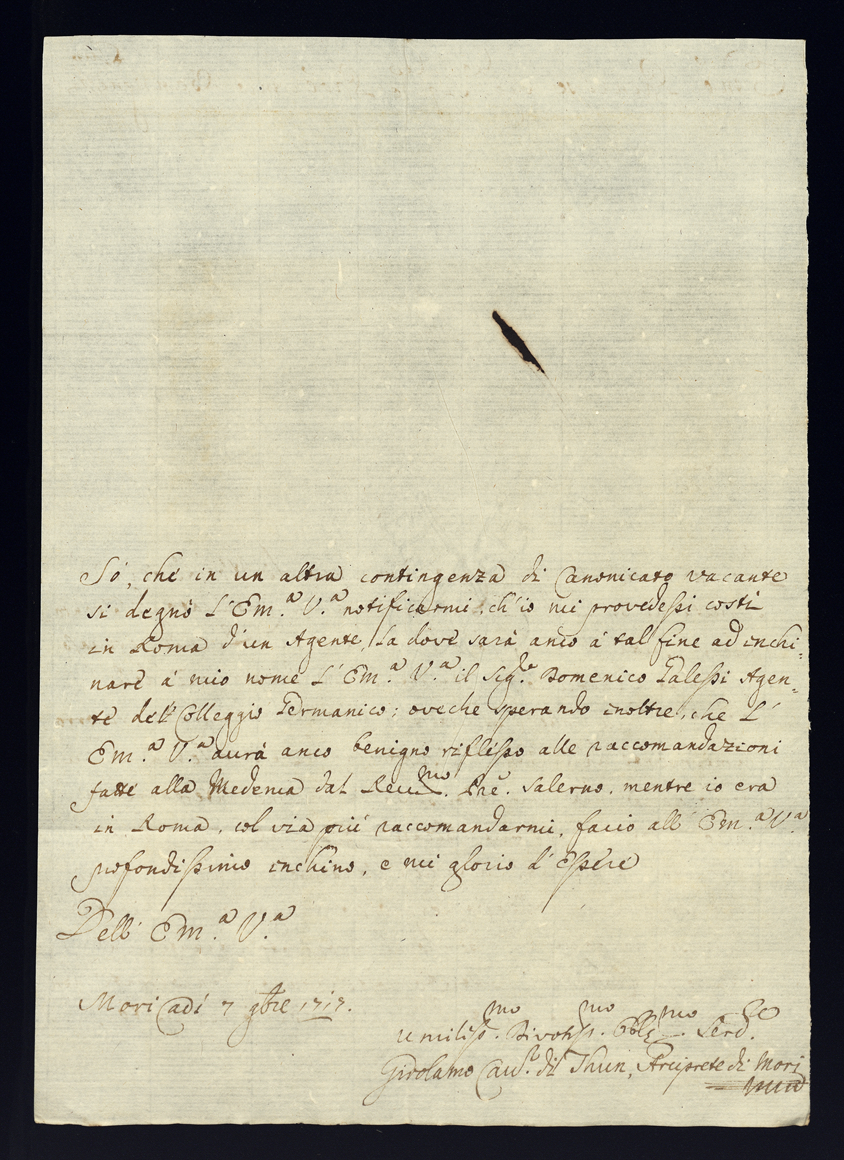 Só, che in un altra contingenza di Canonicato vacante
si degnò l'Em.ª V.ª notificarmi, ch'io mi provedessi costì
in Roma d'un Agente, la dove sarà anco á tal fine ad inchi-
nare á mio nome l'Em.ª V.ª il Sig.e Domenico Galessi Agen-
te dell' Colleggio Germanico; oveche sperando inoltre, che l'
Em.ª V.ª avrà anco benigno riflesso alle raccomandazioni
fatte alla Medema dal Rev.mo Pre. Salerno, mentre io era
in Roma, col via piú raccomandarmi, facio all' Em.ª V.ª
profondissimo inchino, e mi glorio d'Essere
Dell' Em.ª V.ª
Mori adi 7 9bre 1717.
Umiliss.mo Divotiss.mo Obblg.mo Serv.e
Girolamo di Thun, Arciprete di Mori